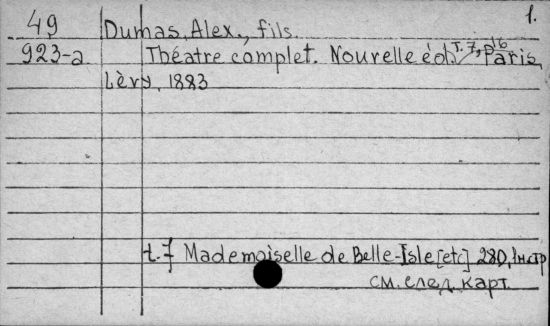 1.
49 Dumas, Alex., fils.
923-a Théatre complet. Nouvelle éd. T. 7, 16 Paris,
Lèvy, 1883
t. 7 Mademoiselle de Belle-Isle [etc] 280, 1 нстр
см. след. карт